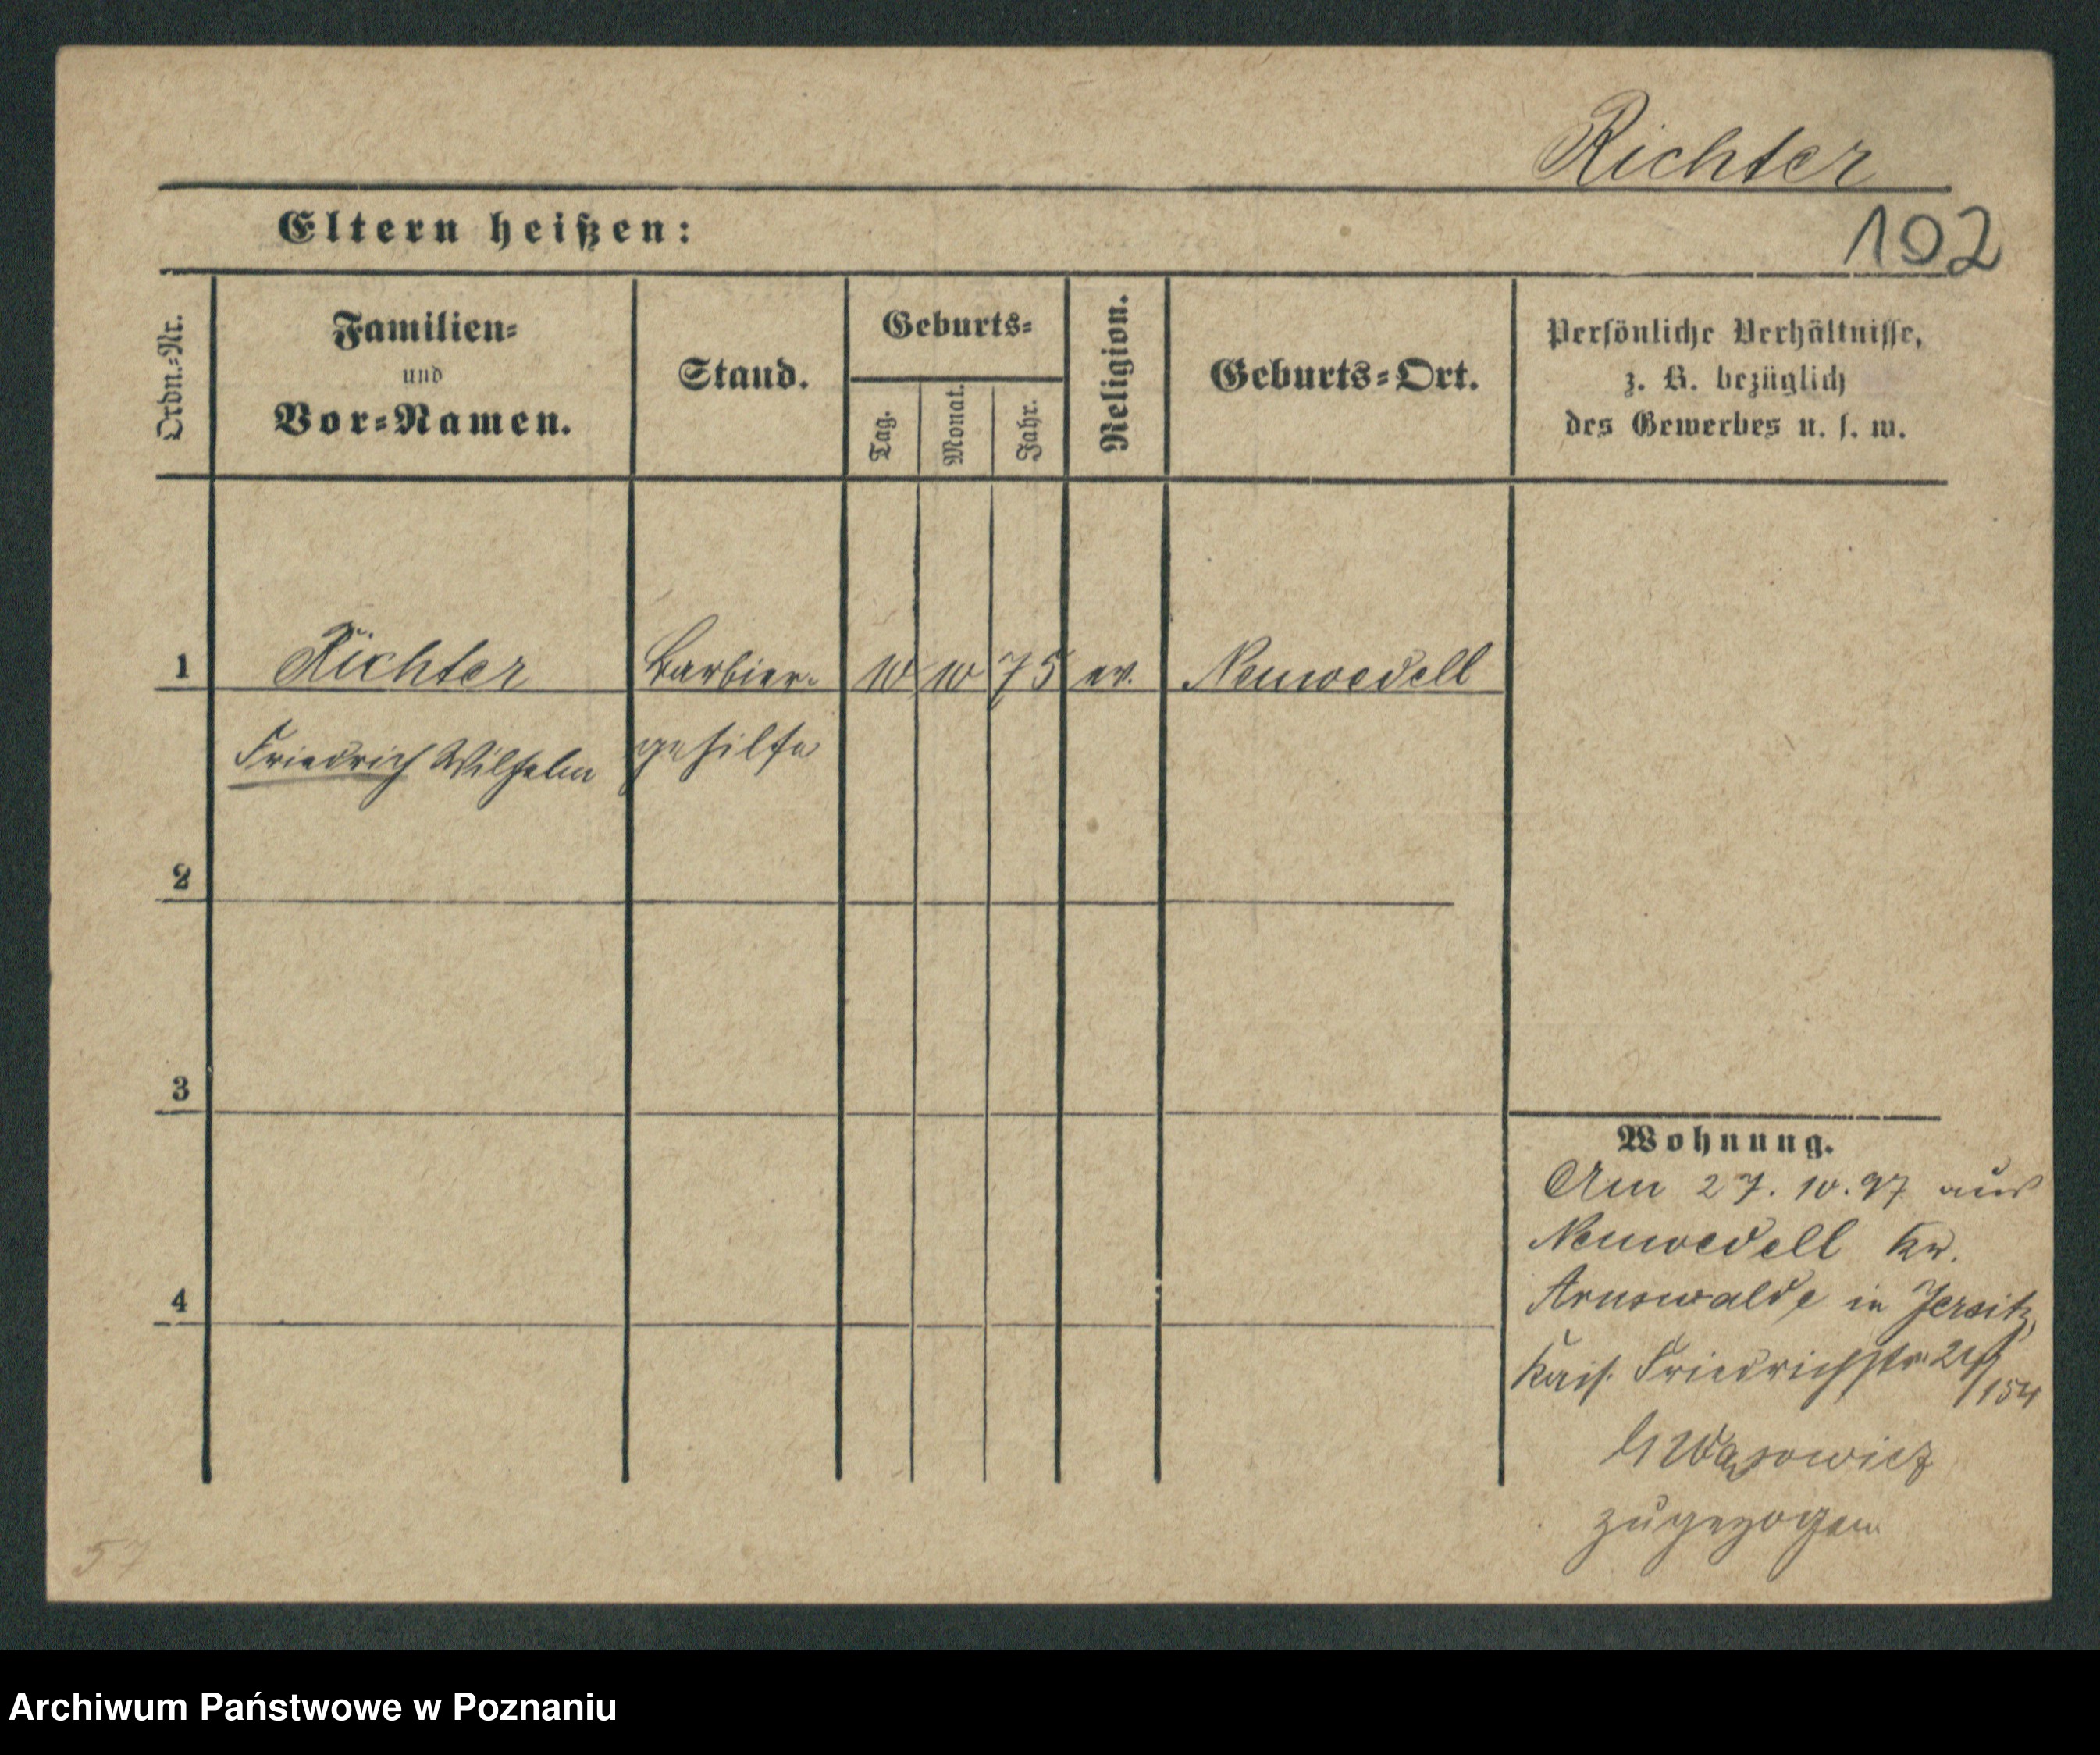 Richter
102
Eltern heißen:
Ordn.-Nr.
Familien-
und
Vor-Namen.
Stand.
Geburts-
Tag.
Monat.
Jahr.
Religion.
Geburts-Ort.
Persönliche Verhältnisse,
z. B. bezüglich
des Gewerbes u. s. w.
1 Richter Barbier- 10 10 75 ev. Neuwedell
Friedrich Wilhelm gehilfe
2
3
4
Wohnung.
Am 27. 10. 97 aus
Neuwedell Kr.
Arnswalde in Jersitz,
Kais. Friedrichstr.
Wąsowicz
zugezogen
57
Archiwum Państwowe w Poznaniu